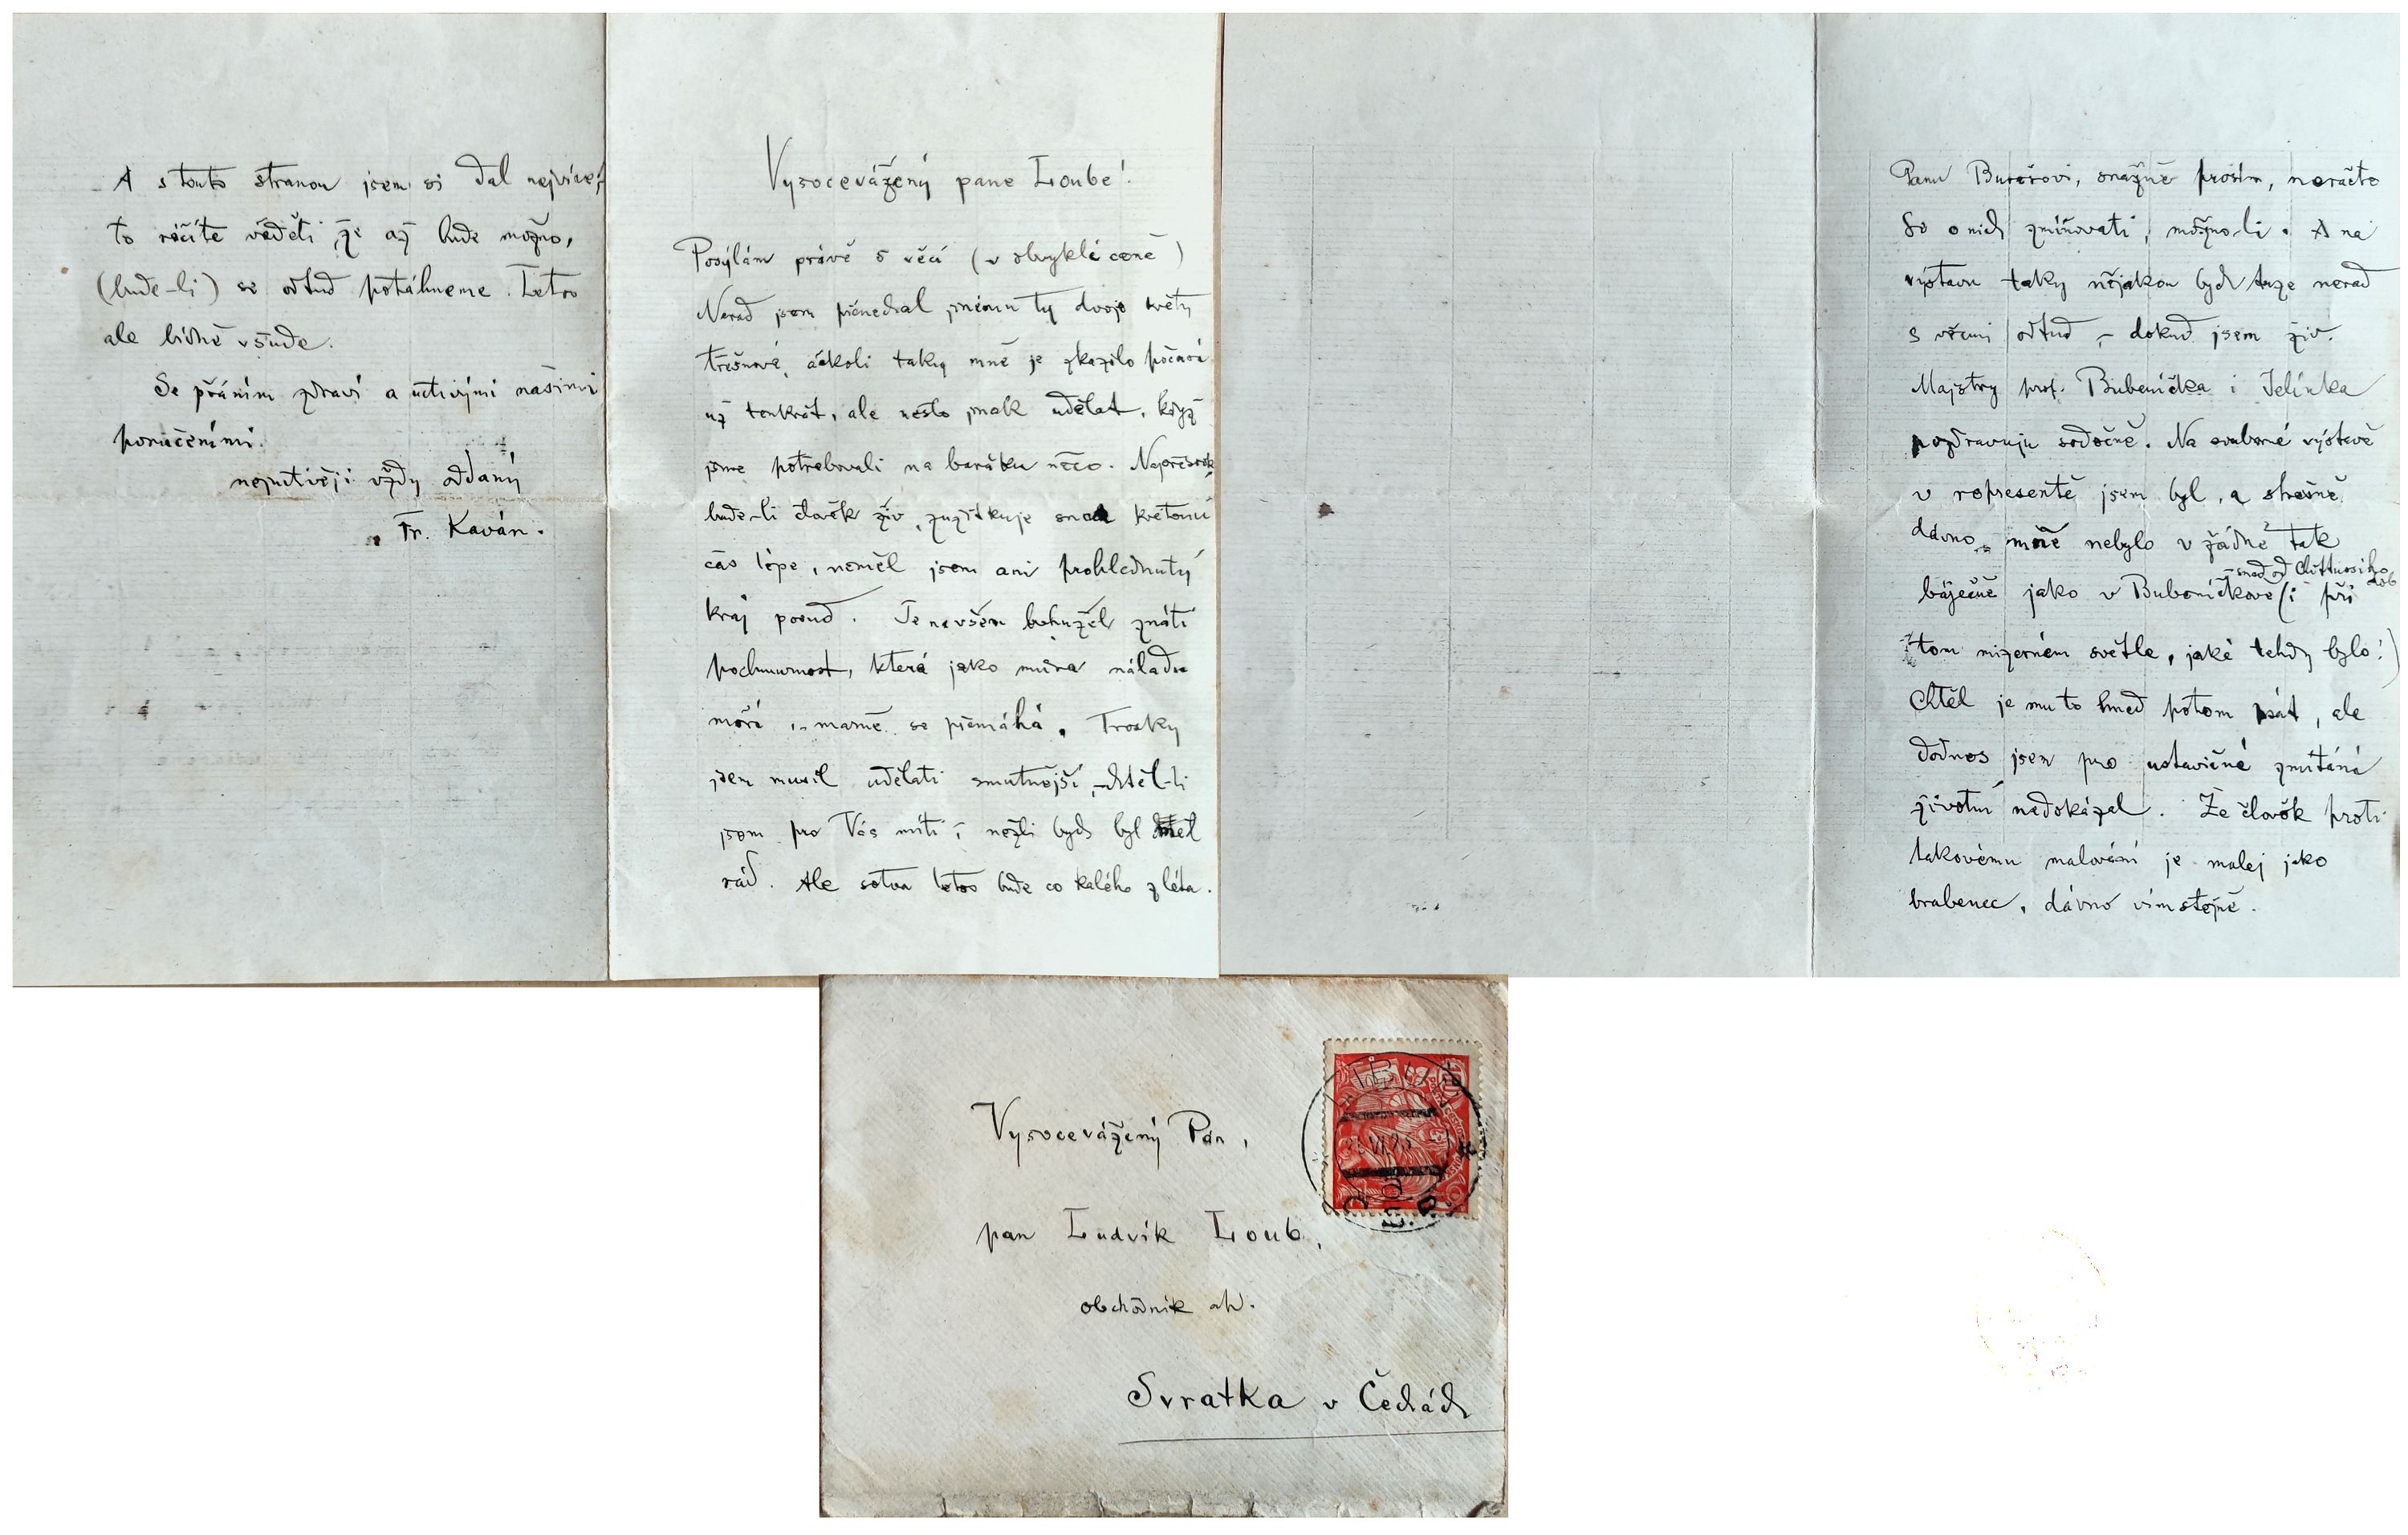 Vysocevážený pane Loube!
Posýlám právě 5 věcí (v obvyklé ceně)
Nerad jsem přenechal jinému ty dvoje květy
třešňové, ačkoli taky mně je zkazilo počasí
už tenkrát, ale nešlo jinak udělat, když
jsme potřebovali na baráku něco. Napřesrok
bude-li člověk živ, zužitkuje snad květovní
čas lépe, neměl jsem ani prohlednutý
kraj posud. Je na všem bohužel znáti
pochmurnost, která jako můra náladu
moří, marně se přemáhá. Trosky
jsem musil udělati smutnější, -chtěl-li
jsem pro Vás míti, nežli bych byl
rád. Ale sotva letos bude co kalého z léta.
Panu Burešovi, snažně prosím, neračte
se o nich zmiňovati, možno-li. A na
výstavu taky nějakou bych tuze nerad
s věcmi odtud, - dokud jsem živ.
Majstry prof. Bubeníčka i Jelínka
pozdravuju srdečně. Na souborné výstavě
v representě jsem byl, a strašně
dávno mně nebylo v žádné tak
- snad od Chittussiho dob
báječně jako v Bubeníčkově (i při
tom mizerném světle, jaké tehdy bylo!)
Chtěl je mu to hned potom psát, ale
dodnes jsem pro ustavičné zmítání
životní nedokázal. Že člověk proti
takovému malování je malej jako
brabenec, dávno vím stejně.
A s touto stranou jsem si dal nejvíce,
to ráčíte věděti, že až bude možno,
(bude-li) se odtud potáhneme. Letos
ale bídně všude.
Se přáním zdraví a uctivými našimi
poručeními.
nejuctivěji vždy oddaný
Fr. Kaván.
Vysocevážený Pán,
pan Ludvík Loub,
obchodník atd.
Svratka v Čechách